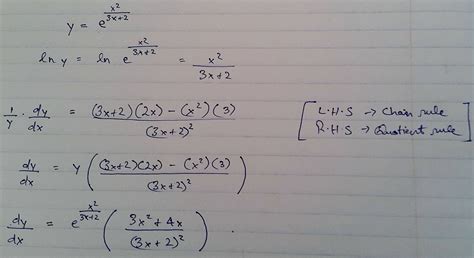 y = e^(x²/(3x+2))
ln y = ln e^(x²/(3x+2)) = x²/(3x+2)
1/y · dy/dx = ((3x+2)(2x) − (x²)(3))/(3x+2)² [L.H.S → Chain rule
R.H.S → Quotient rule]
dy/dx = y(((3x+2)(2x) − (x²)(3))/(3x+2)²)
dy/dx = e^(x²/(3x+2)) ((3x² + 4x)/(3x+2)²).